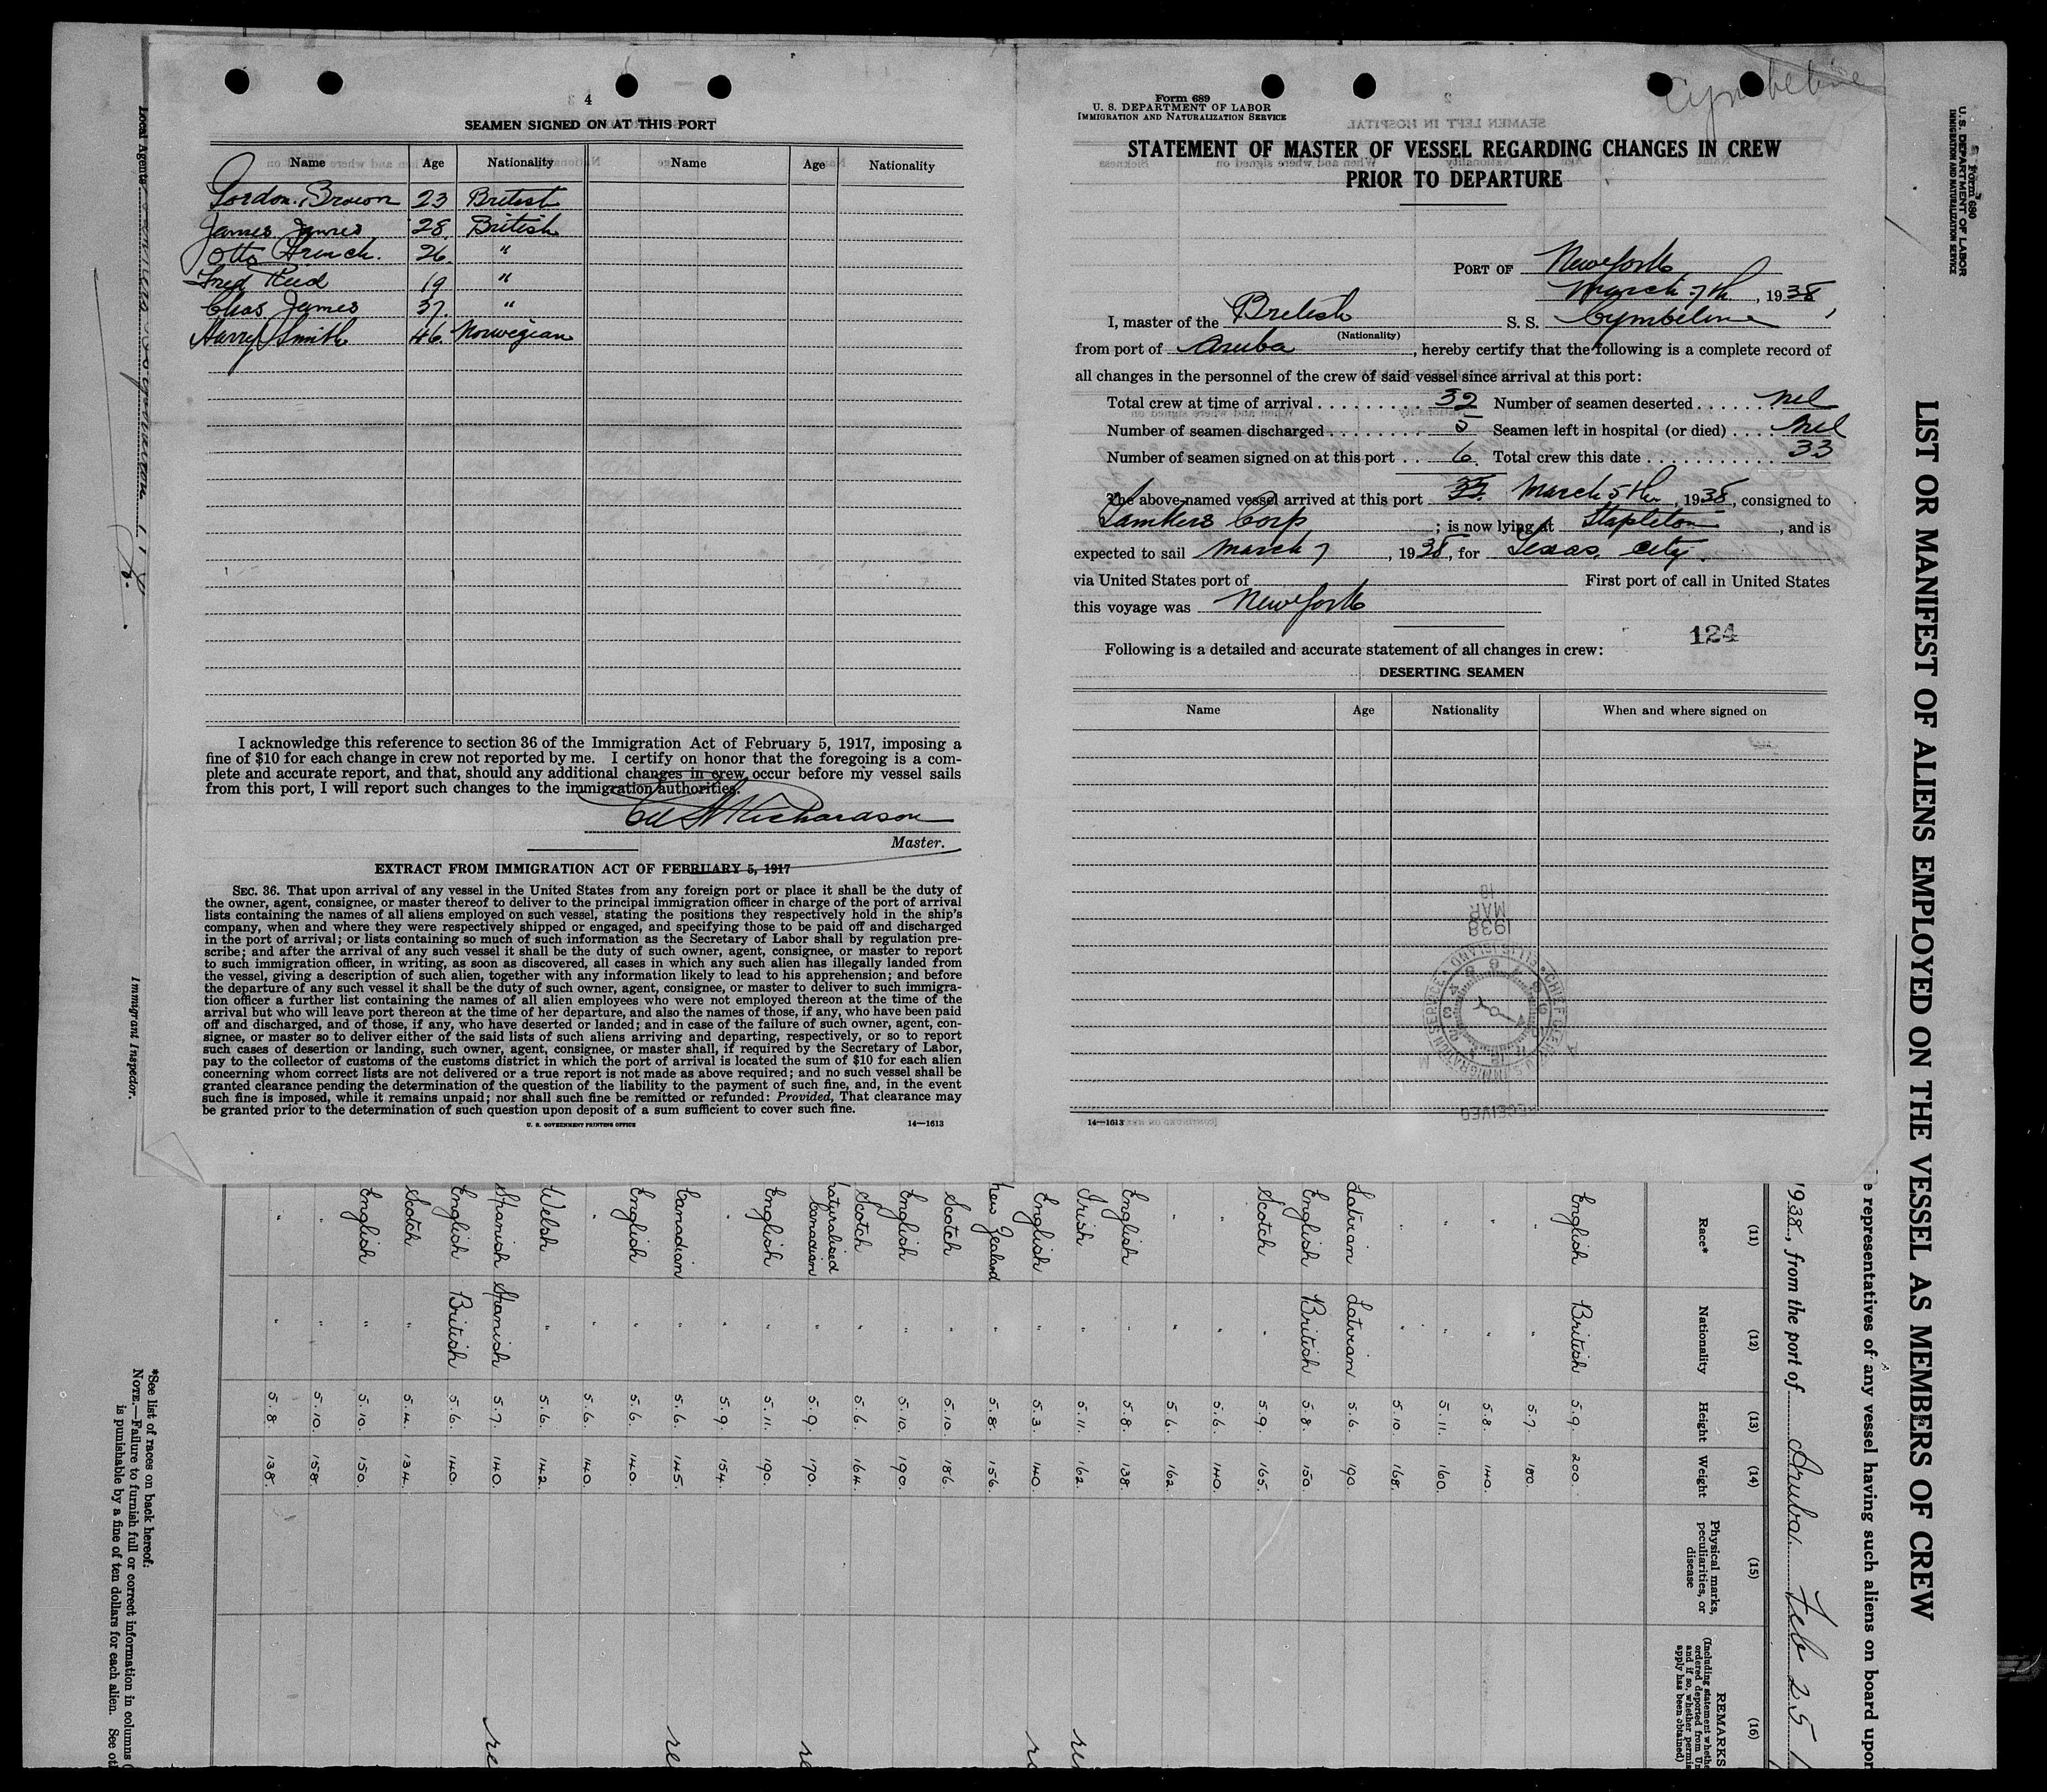 4
SEAMEN SIGNED ON AT THIS PORT
Name Age Nationality Name Age Nationality
Gordon Brown 23 British
James James 28 British
Otto French. 26. "
Fred Reid 19 "
Chas James 37. "
Harry Smith 46. Norwegian
I acknowledge this reference to section 36 of the Immigration Act of February 5, 1917, imposing a
fine of $10 for each change in crew not reported by me. I certify on honor that the foregoing is a com-
plete and accurate report, and that, should any additional changes in crew occur before my vessel sails
from this port, I will report such changes to the immigration authorities.
Richardson
Master.
EXTRACT FROM IMMIGRATION ACT OF FEBRUARY 5, 1917
SEC. 36. That upon arrival of any vessel in the United States from any foreign port or place it shall be the duty of
the owner, agent, consignee, or master thereof to deliver to the principal immigration officer in charge of the port of arrival
lists containing the names of all aliens employed on such vessel, stating the positions they respectively hold in the ship's
company, when and where they were respectively shipped or engaged, and specifying those to be paid off and discharged
in the port of arrival; or lists containing so much of such information as the Secretary of Labor shall by regulation pre-
scribe; and after the arrival of any such vessel it shall be the duty of such owner, agent, consignee, or master to report
to such immigration officer, in writing, as soon as discovered, all cases in which any such alien has illegally landed from
the vessel, giving a description of such alien, together with any information likely to lead to his apprehension; and before
the departure of any such vessel it shall be the duty of such owner, agent, consignee, or master to deliver to such immigra-
tion officer a further list containing the names of all alien employees who were not employed thereon at the time of the
arrival but who will leave port thereon at the time of her departure, and also the names of those, if any, who have been paid
off and discharged, and of those, if any, who have deserted or landed; and in case of the failure of such owner, agent, con-
signee, or master so to deliver either of the said lists of such aliens arriving and departing, respectively, or so to report
such cases of desertion or landing, such owner, agent, consignee, or master shall, if required by the Secretary of Labor,
pay to the collector of customs of the customs district in which the port of arrival is located the sum of $10 for each alien
concerning whom correct lists are not delivered or a true report is not made as above required; and no such vessel shall be
granted clearance pending the determination of the question of the liability to the payment of such fine, and, in the event
such fine is imposed, while it remains unpaid; nor shall such fine be remitted or refunded: Provided, That clearance may
be granted prior to the determination of such question upon deposit of a sum sufficient to cover such fine.
U. S. GOVERNMENT PRINTING OFFICE 14—1613
Cymbeline
Form 689
U. S. DEPARTMENT OF LABOR
IMMIGRATION AND NATURALIZATION SERVICE
STATEMENT OF MASTER OF VESSEL REGARDING CHANGES IN CREW
PRIOR TO DEPARTURE
PORT OF New York
March 7th, 1938,
I, master of the British S. S. Cymbeline
(Nationality)
from port of Aruba, hereby certify that the following is a complete record of
all changes in the personnel of the crew of said vessel since arrival at this port:
Total crew at time of arrival 32 Number of seamen deserted nil
Number of seamen discharged 5 Seamen left in hospital (or died) Nil
Number of seamen signed on at this port 6. Total crew this date 33
The above-named vessel arrived at this port 33. March 5th, 1938, consigned to
Tankers Corp; is now lying at Stapleton, and is
expected to sail March 7, 1938, for Texas City.
via United States port of First port of call in United States
this voyage was New York
124
Following is a detailed and accurate statement of all changes in crew:
DESERTING SEAMEN
Name Age Nationality When and where signed on
1938
MAR
18
CHIEF CLERK U.S. IMMIGRATION SERVICE ELLIS ISLAND
RECEIVED
14—1613
Form 680
U. S. DEPARTMENT OF LABOR
IMMIGRATION AND NATURALIZATION SERVICE
LIST OR MANIFEST OF ALIENS EMPLOYED ON THE VESSEL AS MEMBERS OF CREW
e representatives of any vessel having such aliens on board upon
1938, from the port of Aruba. Feb 25
(11) (12) (13) (14) (15) (16)
Race* Nationality Height Weight Physical marks, peculiarities, or disease REMARKS
(Including statement whethe
ordered deported from Un
and if so, whether permis
apply has been obtained)
English British 5.9. 200.
5.7. 180.
" " 5.8. 140.
" " 5.11. 160.
" " 5.10. 168.
Latvian Latvian 5.6. 190.
English British 5.8. 150.
Scotch " 5.9. 165.
" " 5.6. 140.
" " 5.6. 162.
English " 5.8. 138.
Irish " 5.11. 162.
English " 5.3. 140.
New Zealand " 5.8. 156.
Scotch " 5.10. 186.
English " 5.10. 190.
Scotch " 5.6. 164.
naturalised Canadian " 5.9. 170.
English " 5.11. 190.
" " 5.9. 154.
Canadian " 5.6. 145.
English " 5.6. 140.
" " 5.6. 140.
Welsh " 5.6. 142.
Spanish Spanish 5.7. 140.
English British 5.6. 140.
Scotch " 5.4. 134.
English " 5.10. 150.
" " 5.10. 158.
" " 5.8. 138.
Local Agents
Immigrant Inspector.
*See list of races on back hereof:
NOTE.—Failure to furnish full or correct information in columns
is punishable by a fine of ten dollars for each alien. See ot